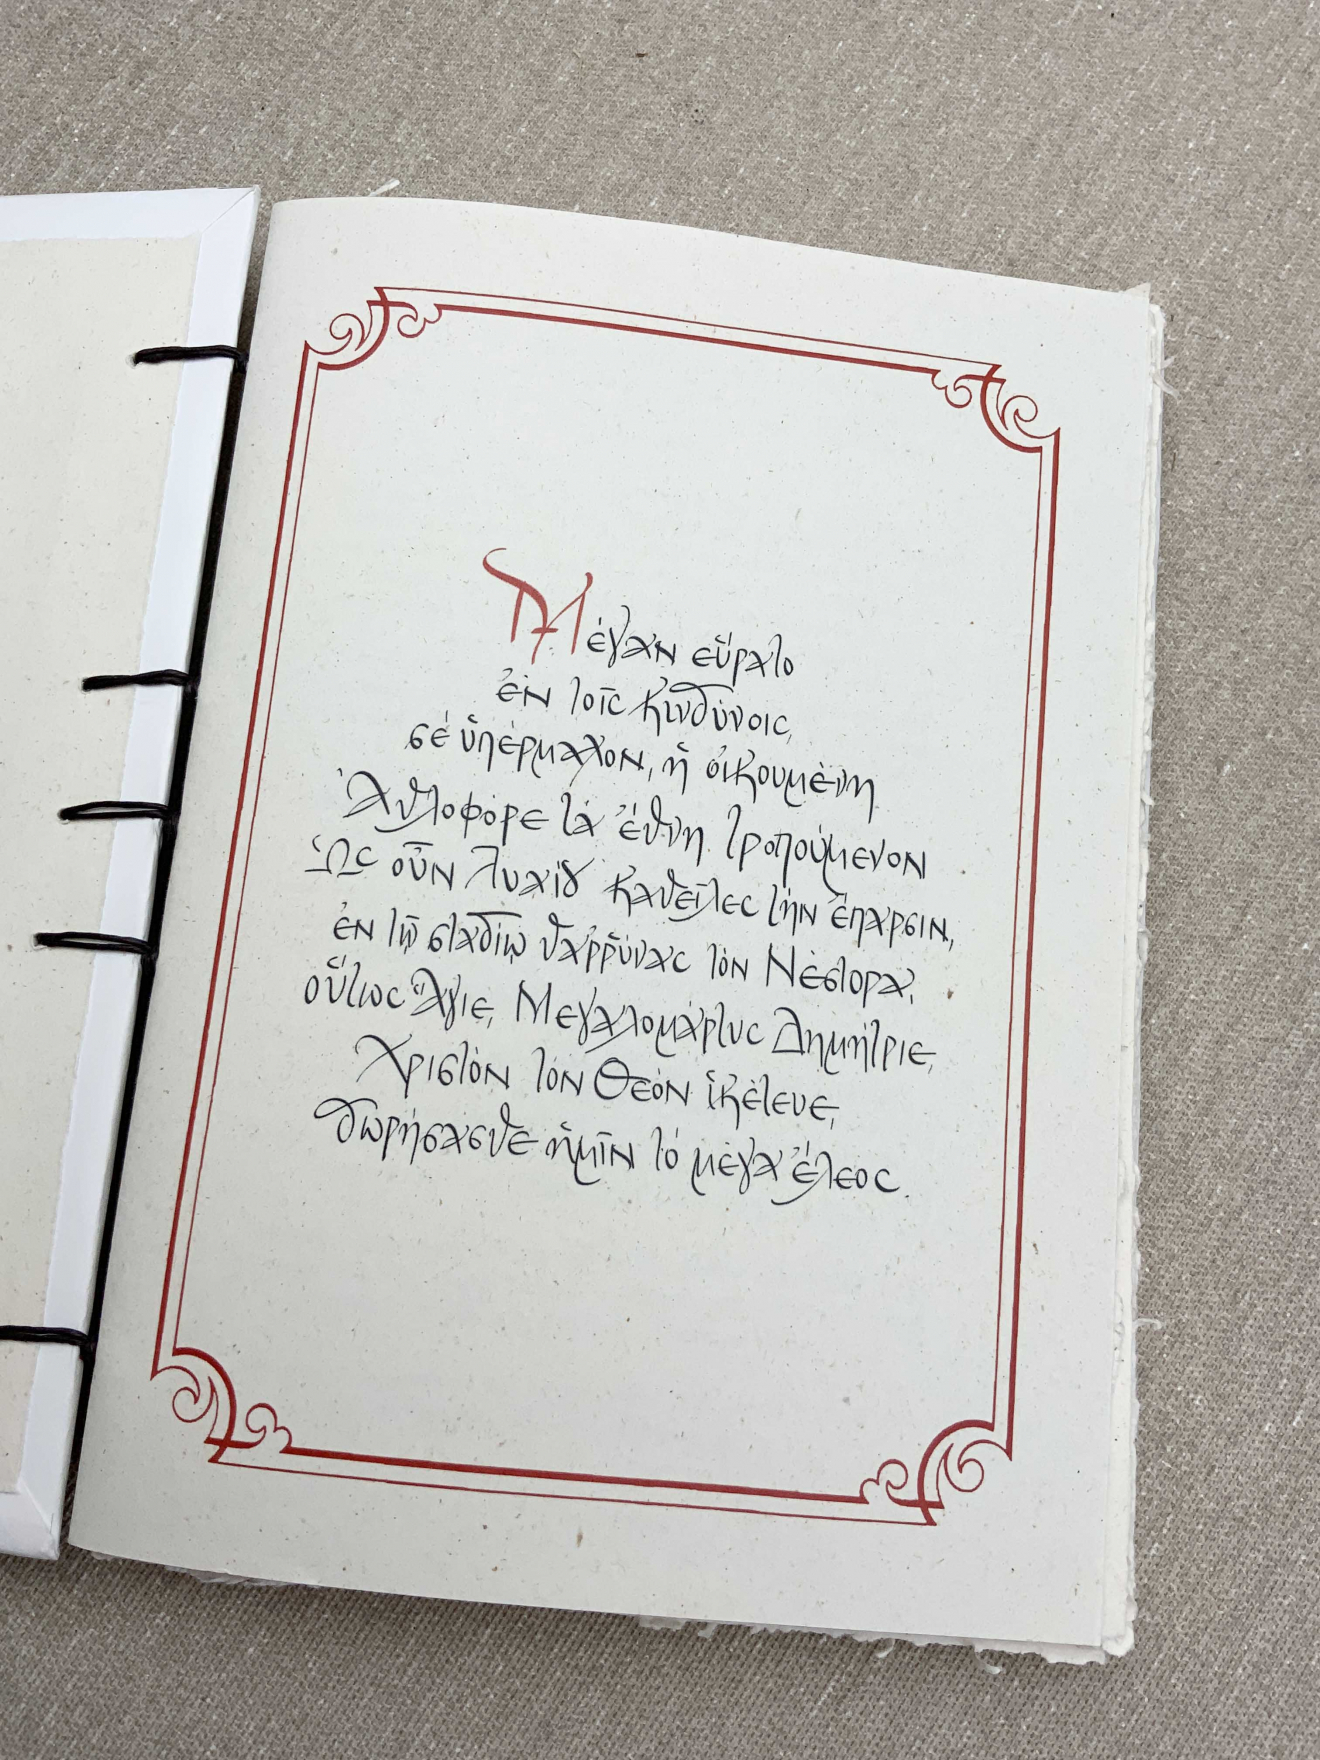 Μέγαν εὕρατο
ἐν τοῖς κινδύνοις,
σέ ὑπέρμαχον, ἡ οἰκουμένη
Ἀθλοφόρε τά ἔθνη τροπούμενον
Ὡς οὖν Λυαίου καθεῖλες τήν ἔπαρσιν,
ἐν τῷ σταδίῳ θαρρύνας τόν Νέστορα,
οὕτως Ἅγιε, Μεγαλομάρτυς Δημήτριε,
Χριστόν τόν Θεόν ἱκέτευε,
δωρήσασθε ἡμῖν τό μέγα ἔλεος.